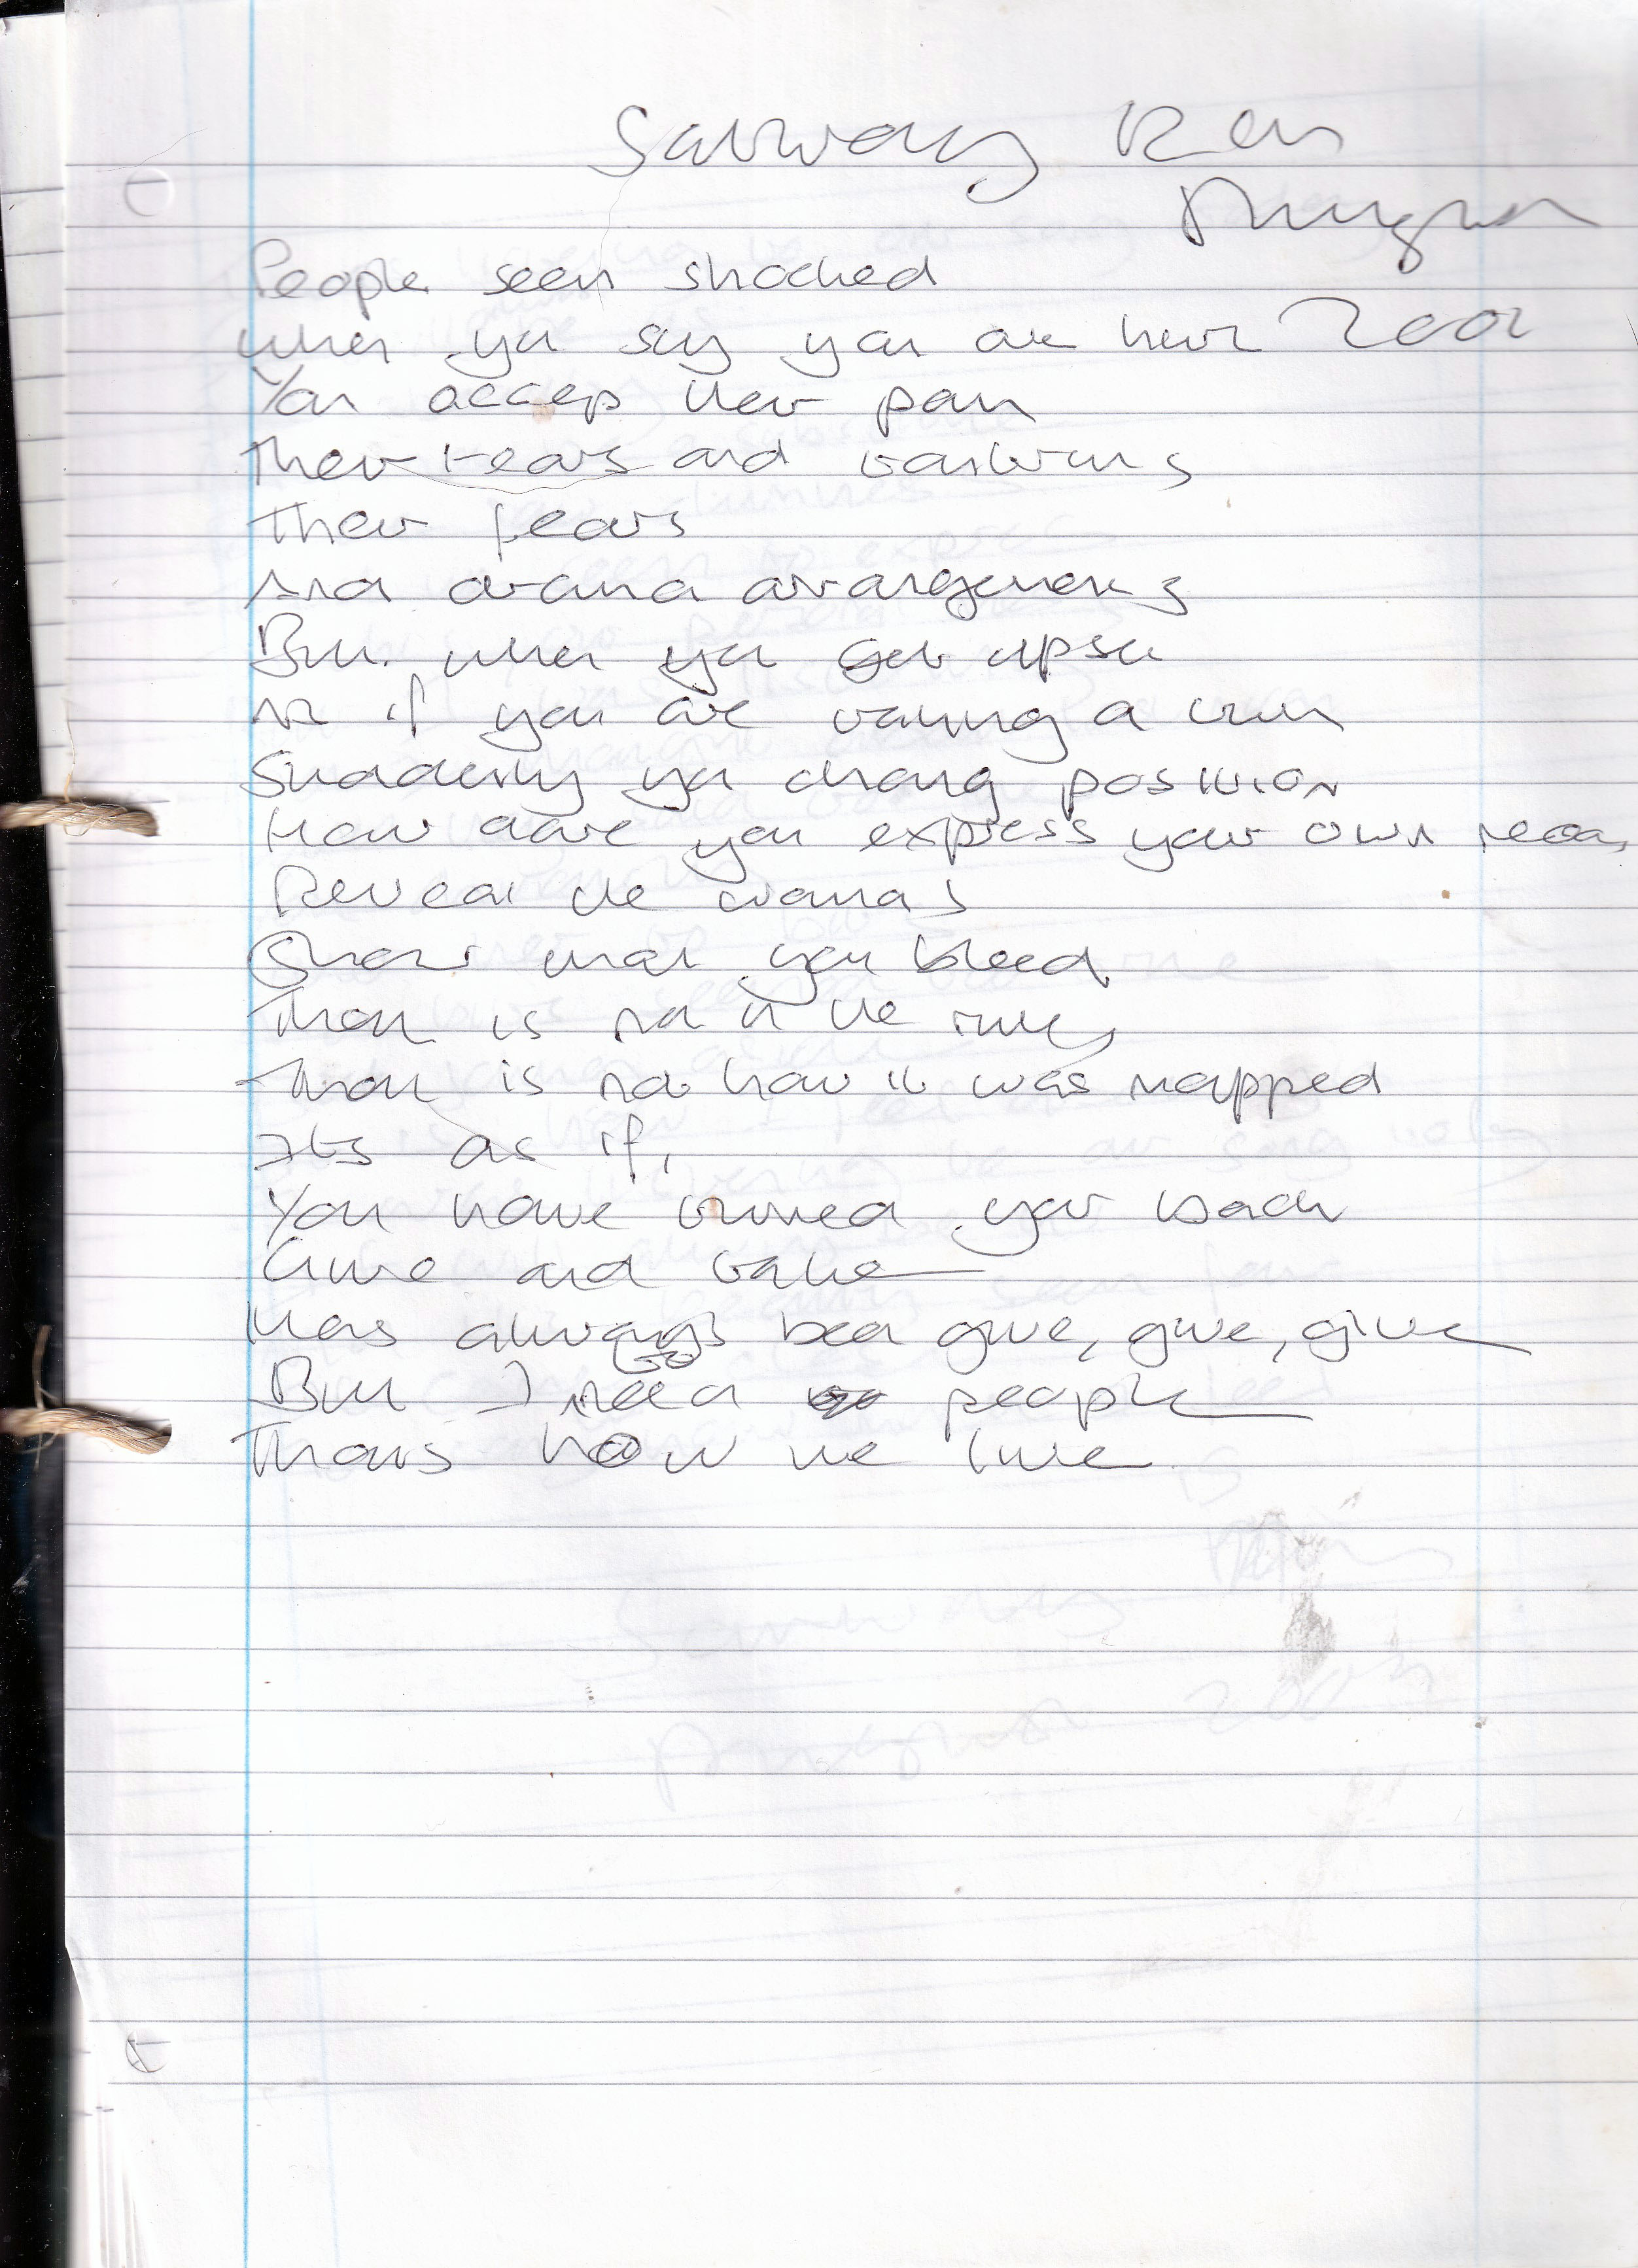 Saturday 12th
August
People seem shocked
when you say you are hurt 2001
You accept their pain
Their tears and tantrums
Their fears
And drama arrangements
But when you get upset
It is if you are taking a turn
Suddenly you change position
How dare you express your own need,
Reveal the wounds
Show that you bleed
That is not in the rules,
That is not how it was mapped
Its as if,
You have turned your back
Give and take
Has always been give, give, give
But I need to people
Thats how we live